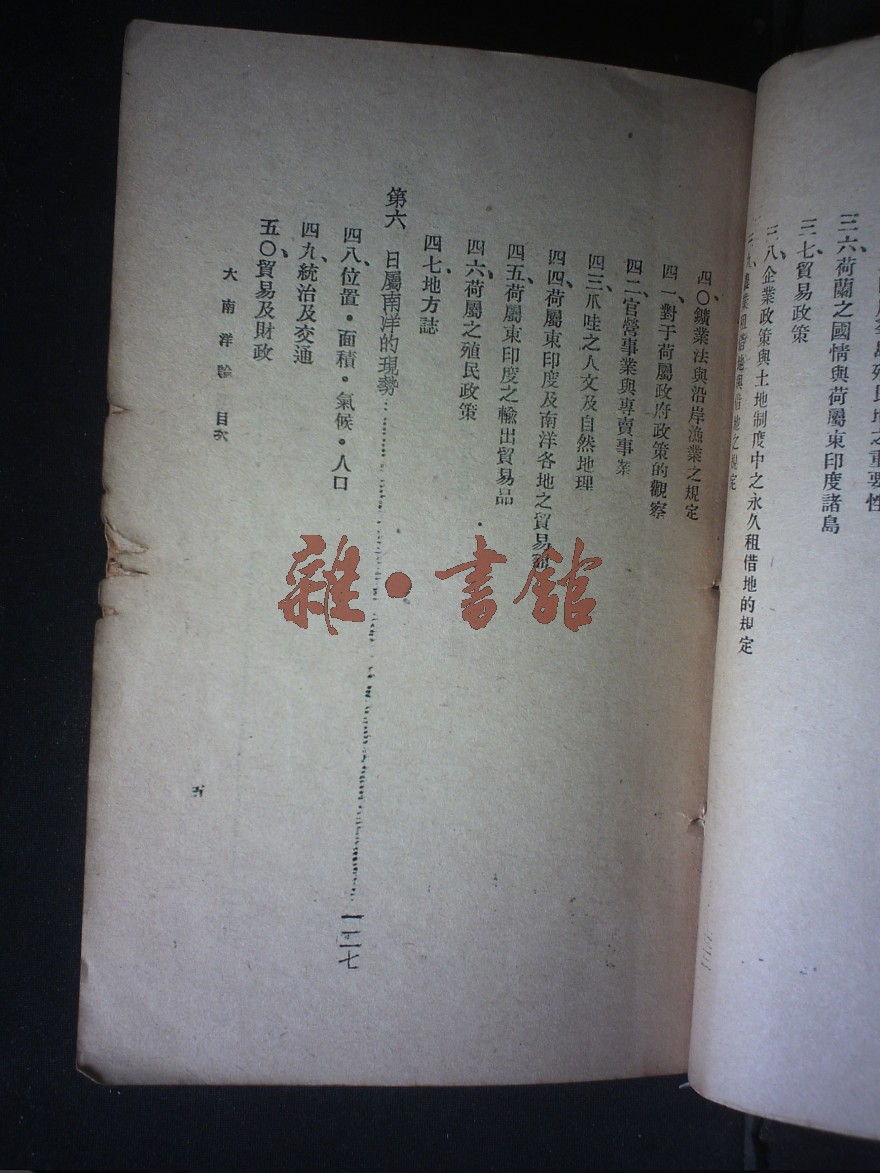 三六、荷蘭之國情與荷屬東印度諸島
三七、貿易政策
三八、企業政策與土地制度中之永久租借地的規定
四〇、鑛業法與沿岸漁業之規定
四一、對于荷屬政府政策的觀察
四二、官營事業與專賣事業
四三、爪哇之人文及自然地理
四四、荷屬東印度及南洋各地之貿易
四五、荷屬東印度之輸出貿易品
四六、荷屬之殖民政策
四七、地方誌
第六 日屬南洋的現勢…………一二七
四八、位置・面積・氣候・人口
四九、統治及交通
五〇、貿易及財政
大南洋論 目次
五
雜・書館